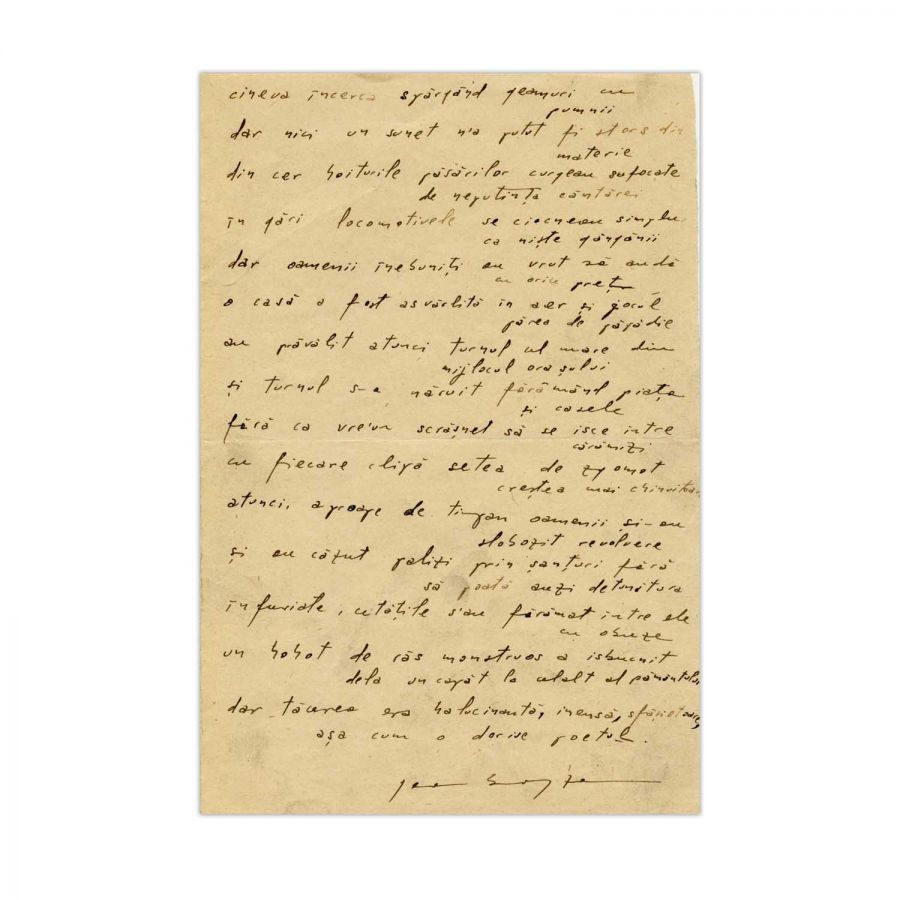 cineva încerca spărgând geamuri cu
pumnii
dar nici un sunet n'a putut fi stors din
materie
din cer hoiturile păsărilor curgeau sufocate
de neputința cântărei
în gări locomotivele se ciocneau simplu,
ca niște gângănii
dar oamenii înebuniți au vrut să audă
cu orice preț
o casă a fost asvârlită în aer și jocul
părea de păpădie
au prăvălit atunci turnul cel mare din
mijlocul orașului
și turnul s-a năruit fărâmând piața
și casele
fără ca vre'un scrâșnet să se isce intre
cărămizi
cu fiecare clipă setea de zgomot
creștea mai chinuitoare
atunci, aproape de timpan oamenii și-au
slobozit revolvere
și au căzut palizi prin șanțuri fără
să poată auzi detunătura
înfuriate, cetățile s'au fărâmat intre ele
cu obuze
un hohot de râs monstruos a isbucnit
dela un capăt la celalt al pământului
dar tăcerea era halucinantă, imensă, sfâșietoare,
așa cum o dorise poetul.